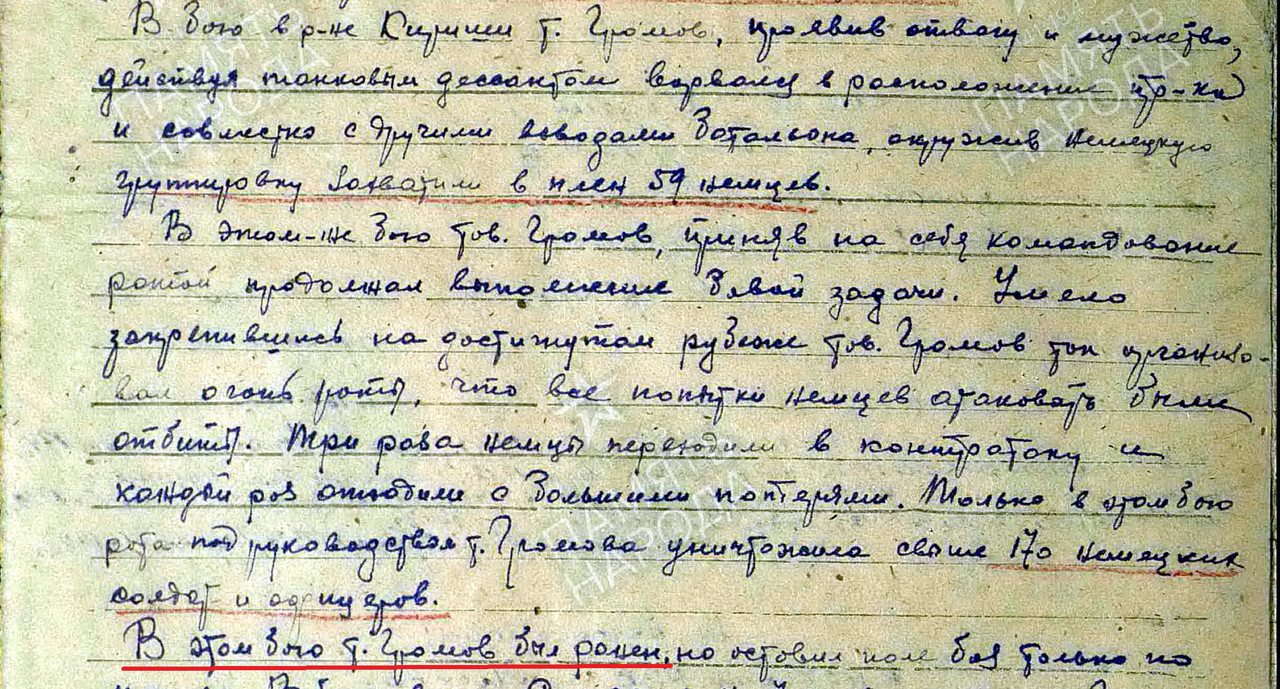 В бою в р-не Кириши т. Громов, проявив отвагу и мужество,
действуя танковым дессантом ворвался в расположение пр-ка
и совместно с другими взводами батальона, окружив немецкую
группировку захватили в плен 59 немцев.
В этом-же бою тов. Громов, приняв на себя командование
ротой продолжал выполнение боевой задачи. Умело
закрепившись на достигнутом рубеже тов. Громов так организо-
вал огонь роты, что все попытки немцев атаковать были
отбиты. Три раза немцы переходили в контратаку и
каждый раз отходили с большими потерями. Только в этом бою
рота под руководством т. Громова уничтожила свыше 170 немецких
солдат и офицеров.
В этом бою т. Громов был ранен, но оставил поле боя только по
ПАМЯТЬ НАРОДА